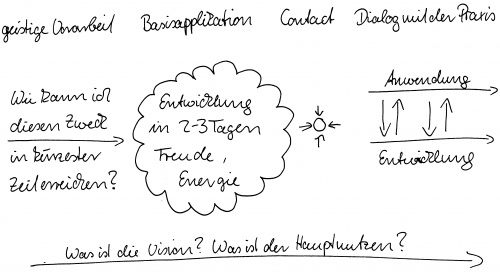 geistige Vorarbeit
Basisapplikation
Contact
Dialog mit der Praxis
Wie kann ich
diesen Zweck
in kürzester
Zeit erreichen?
Entwicklung
in 2-3 Tagen
Freude,
Energie
Anwendung
Entwicklung
Was ist die Vision? Was ist der Hauptnutzen?